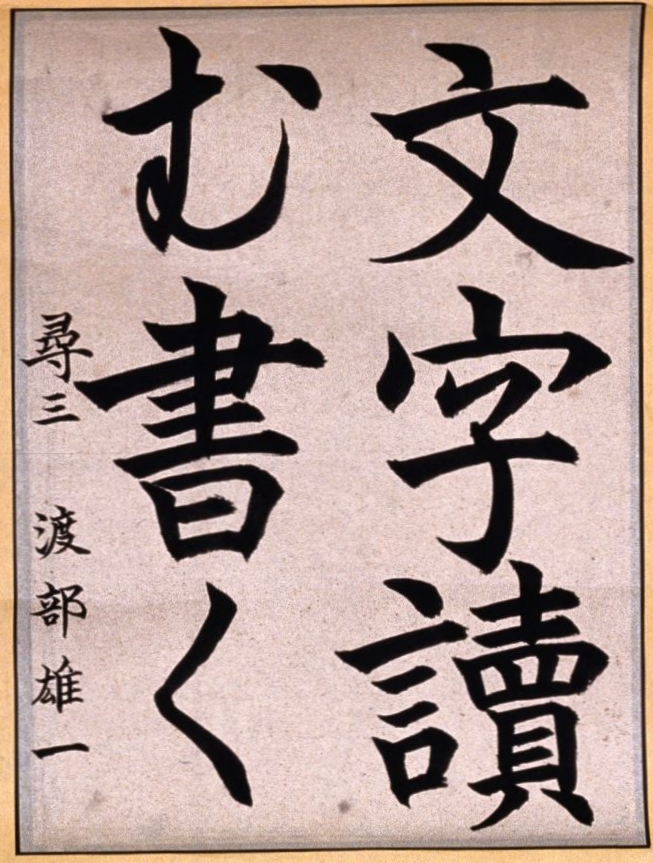 文字讀
む書く
尋三 渡部雄一